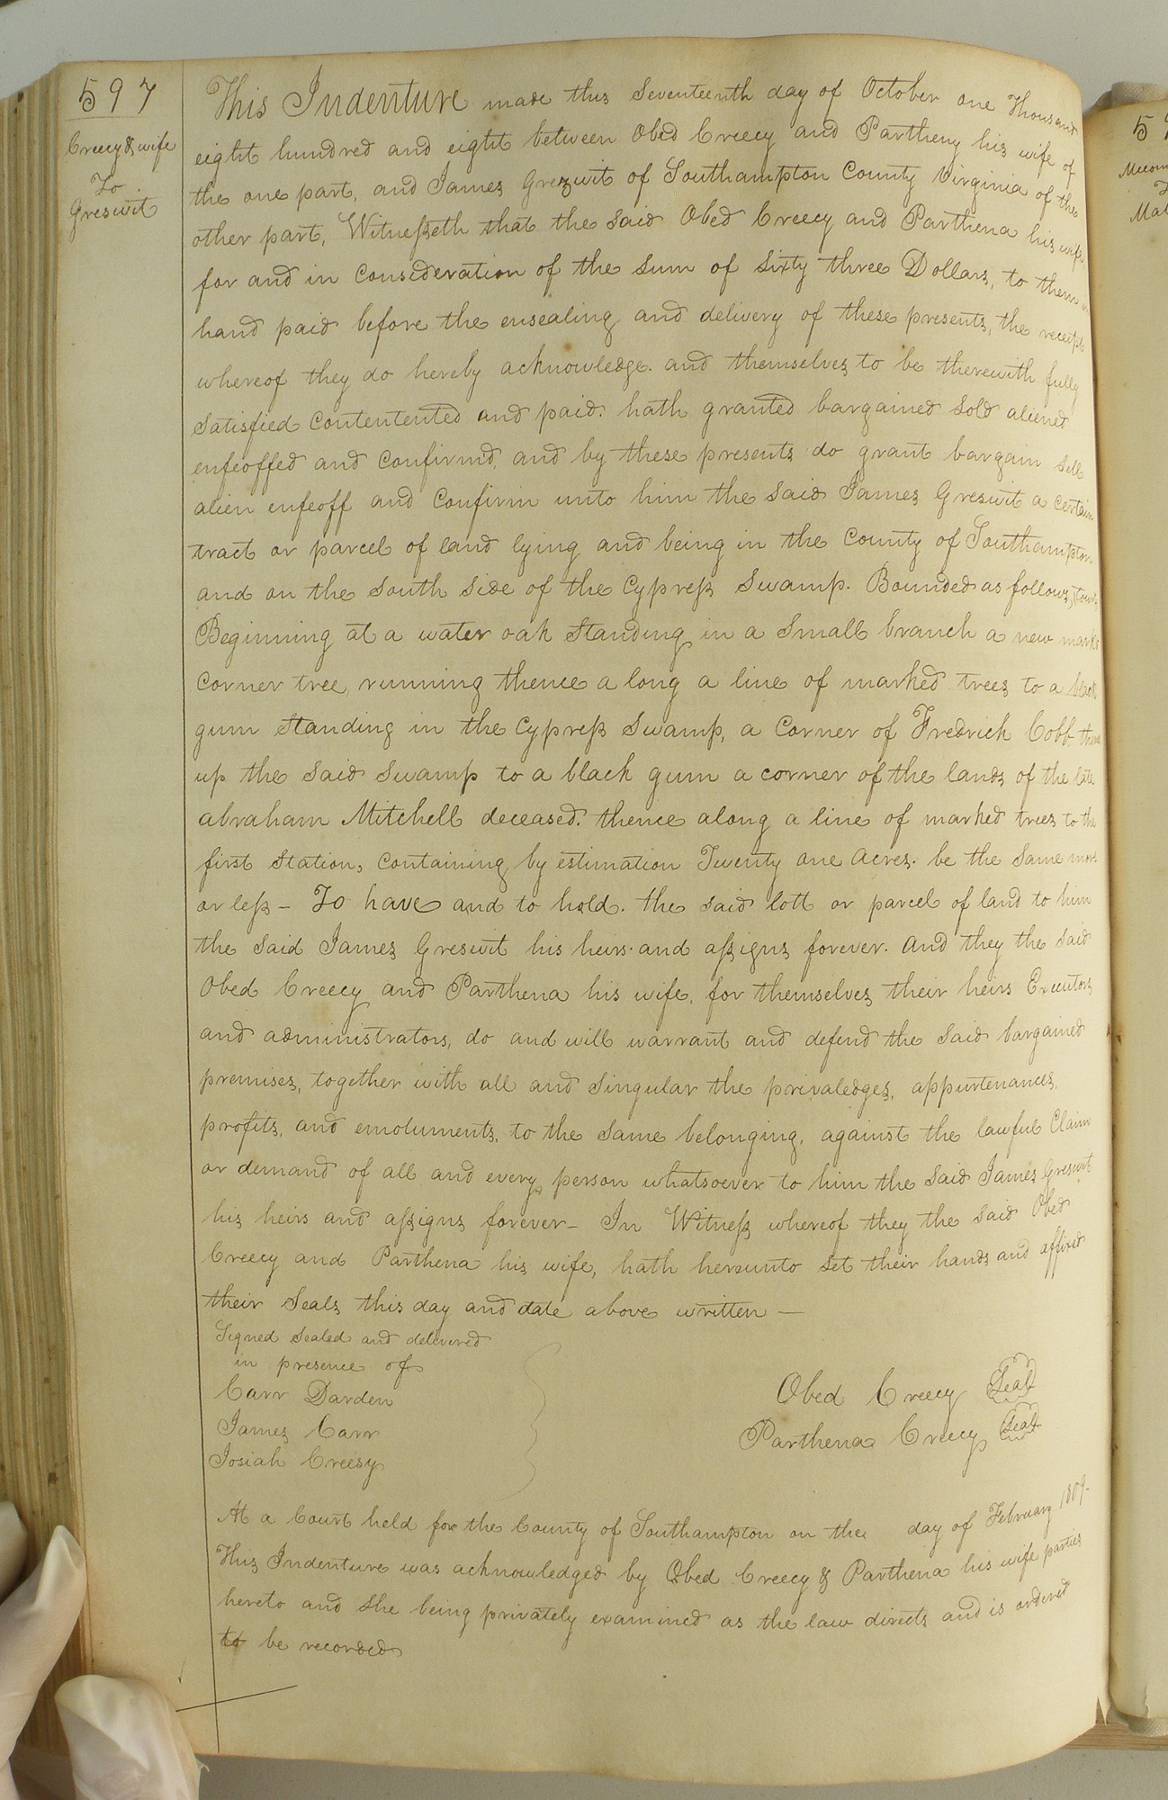 597
Creecy & wife
To
Greswit
This Indenture made this Seventeenth day of October one Thousand
eight hundred and eight between Obed Creecy and Partheny his wife of
the one part, and James Grezwit of Southampton County Virginia of the
other part, Witnesseth that the said Obed Creecy and Parthena his wife
for and in consideration of the sum of Sixty three Dollars, to them in
hand paid before the ensealing and delivery of these presents, the receipt
whereof they do hereby acknowledge. and themselves to be therewith fully
Satisfied Contentented and paid. hath granted bargained Sold aliened
enfeoffed and confirmd, and by these presents do grant bargain Sell
alien enfeoff and Confirm unto him the said James Greswit a certain
tract or parcel of land lying and being in the County of Southampton
and on the South Side of the Cypress Swamp. Bounded as follows, towit
Beginning at a water oak Standing in a Small branch a new markd
corner tree, running thence a long a line of marked trees to a black
gum Standing in the Cypress Swamp, a Corner of Fredrich Cobb thence
up the said Swamp to a black gum a corner of the lands of the late
abraham Mitchell deceased. thence along a line of marked trees to the
first Station, Containing by estimation Twenty one Acres. be the Same more
or less - To have and to hold. the said lott or parcel of land to him
the said James Greswit his heirs and assigns forever. And they the said
Obed Creecy and Parthena his wife, for themselves their heirs Executors
and administrators, do and will warrant and defend the said bargained
premises, together with all and Singular the privaledges, appurtenances
profits, and emoluments, to the Same belonging, against the lawful Claim
or demand of all and every person whatsoever to him the said James Greswit
his heirs and assigns forever - In Witness whereof they the said Obed
Creecy and Parthena his wife, hath hereunto Set their hands and affixed
their Seals this day and date above written -
Signed Sealed and delivered
in presence of
Carr Darden
James Carr
Josiah Creesy
Obed Creecy Seal
Parthena Creecy Seal
At a Court held for the County of Southampton on the day of February 1809.
This Indenture was acknowledged by Obed Creecy & Parthena his wife parties
hereto and She being privately examined as the law directs and is ordered
to be recorded